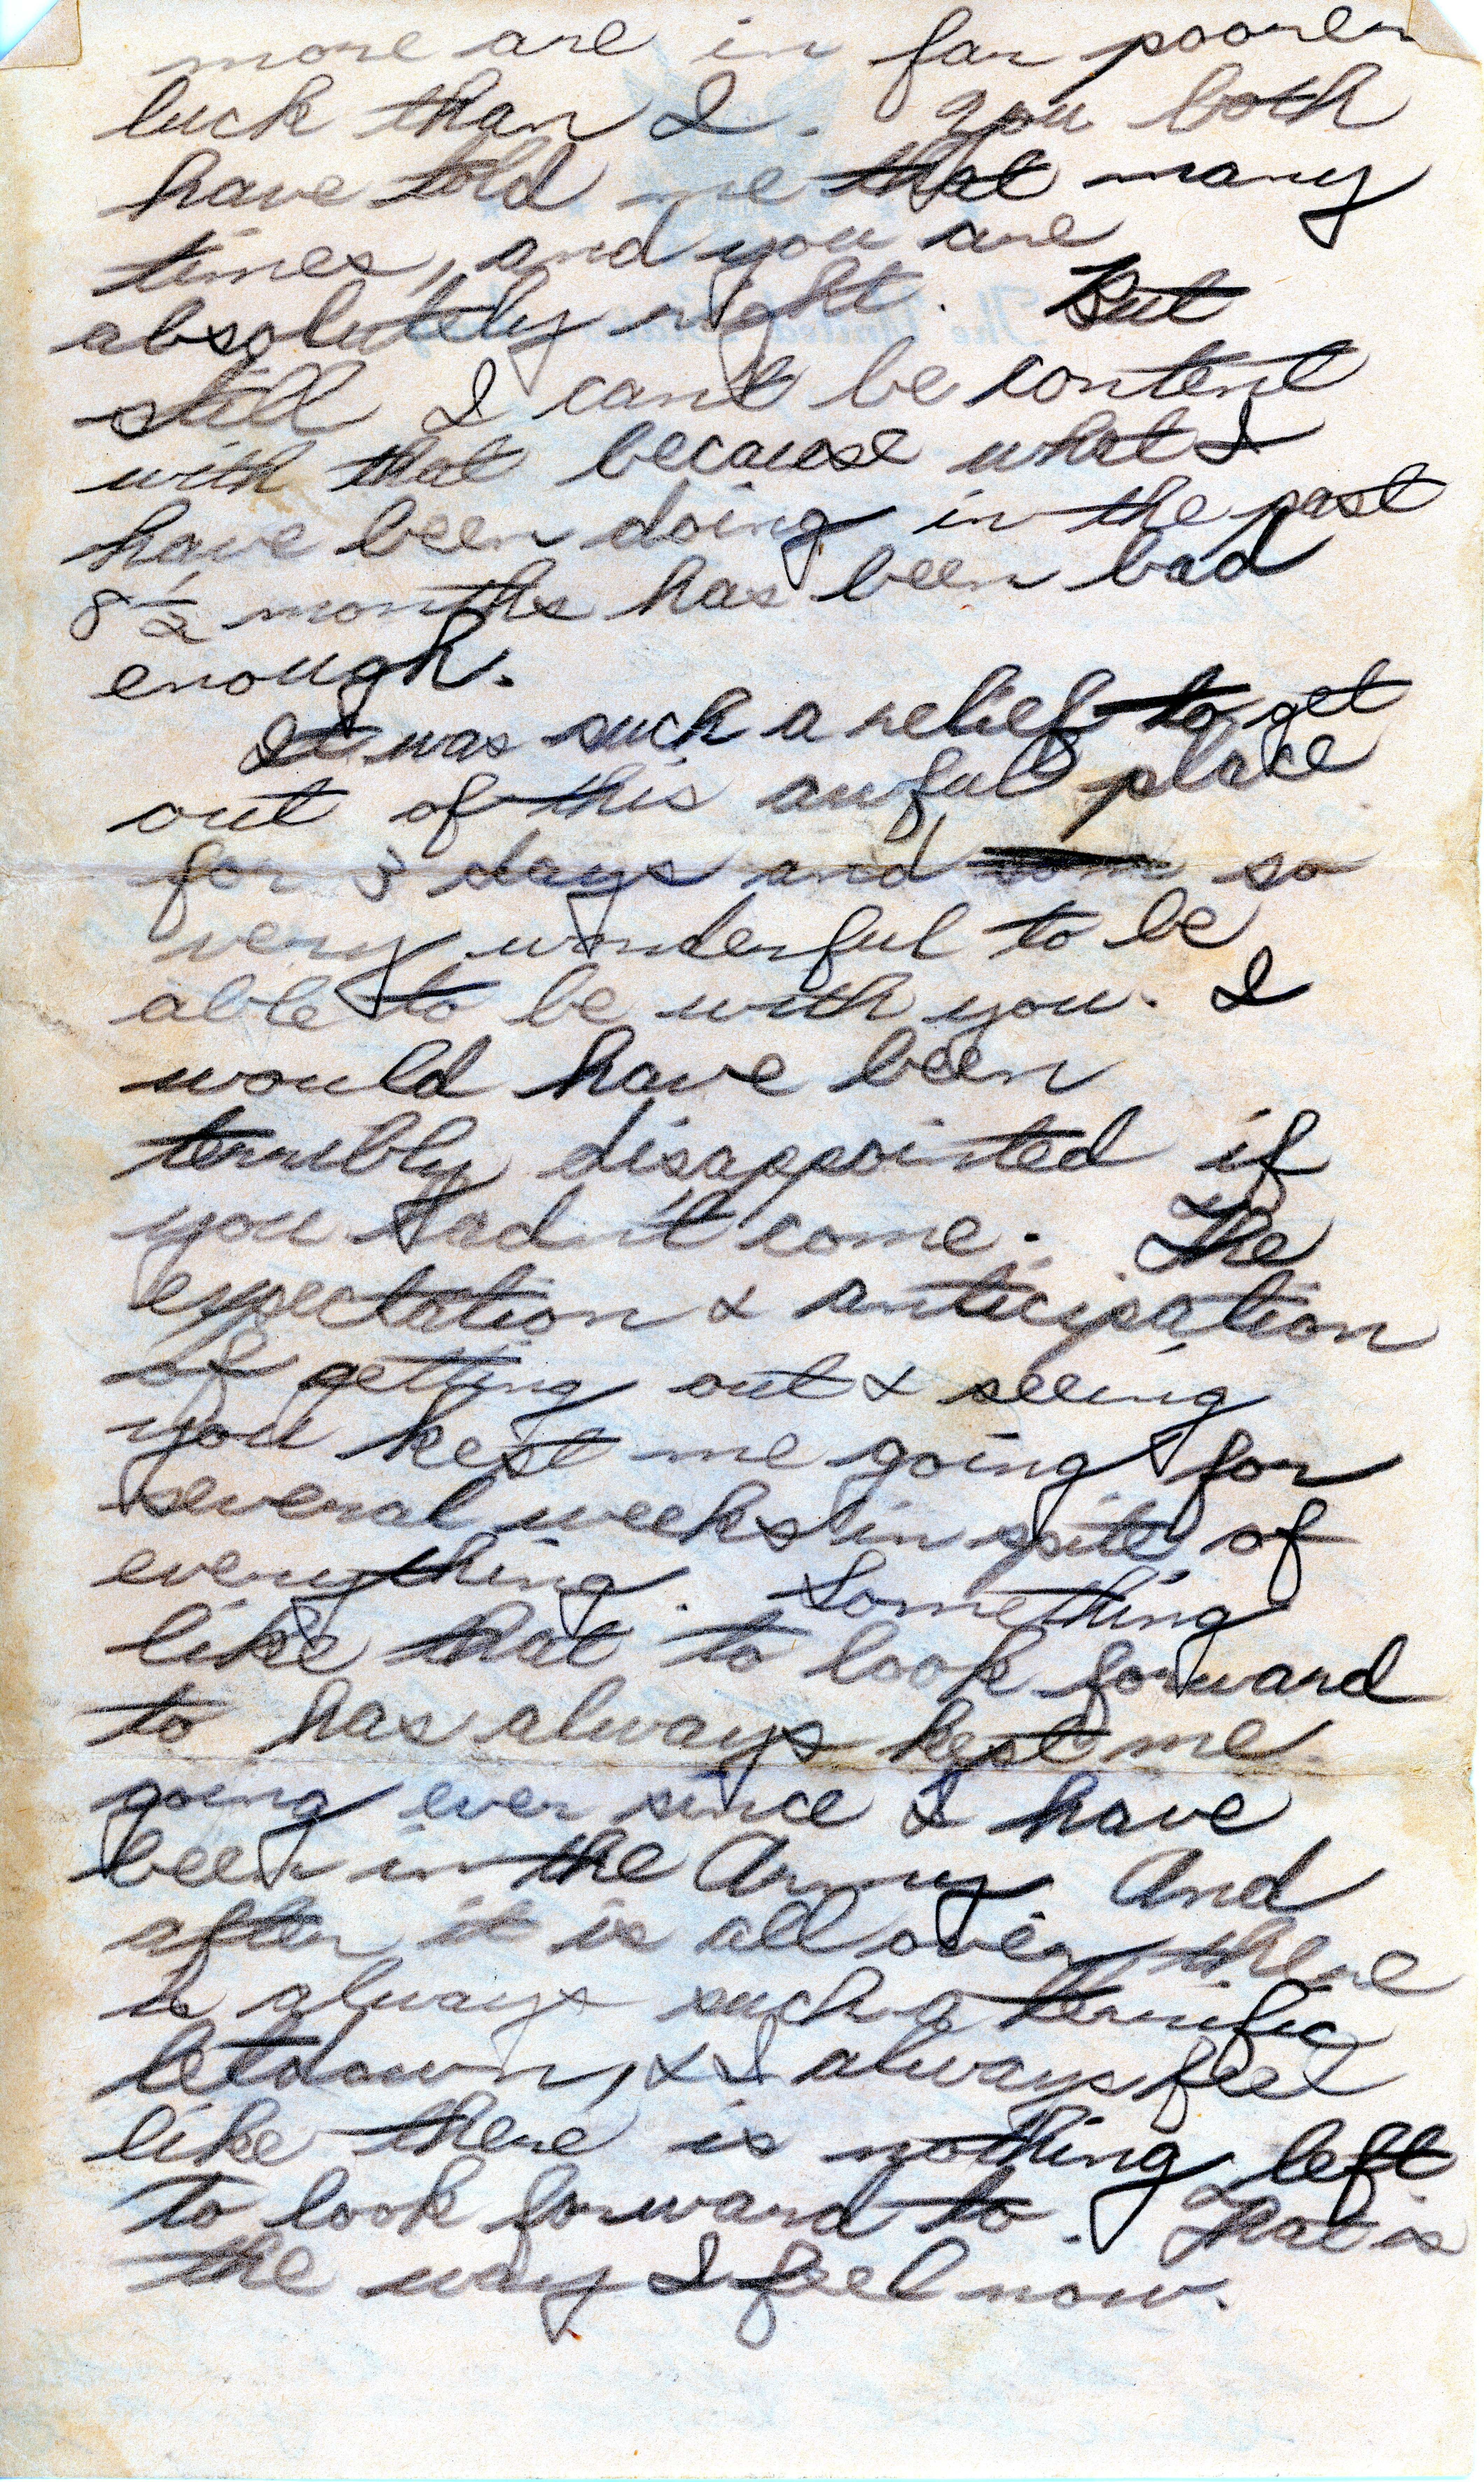 more are in far poorer
luck than I. You both
have told me that many
times, and you are
absolutely right. But
still I cant be content
with that because what I
have been doing in the past
8 1/2 months has been bad
enough.
It was such a relief to get
out of this awful place
for 3 days and so
very wonderful to be
able to be with you. I
would have been
terribly disappointed if
you hadn't come. The
expectation & anticipation
of getting out & seeing
you kept me going for
several weeks in spite of
everything. Something
like that to look forward
to has always kept me
going ever since I have
been in the Army. And
after it is all over, there
is always such a terrific
letdown, & I always feel
like there is nothing left
to look forward to. That is
the way I feel now.